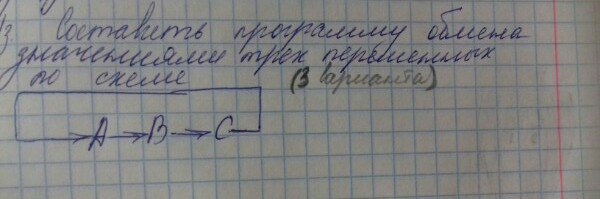 Составить программу обмена
значениями трех переменных
по схеме (3 варианта)
A B C